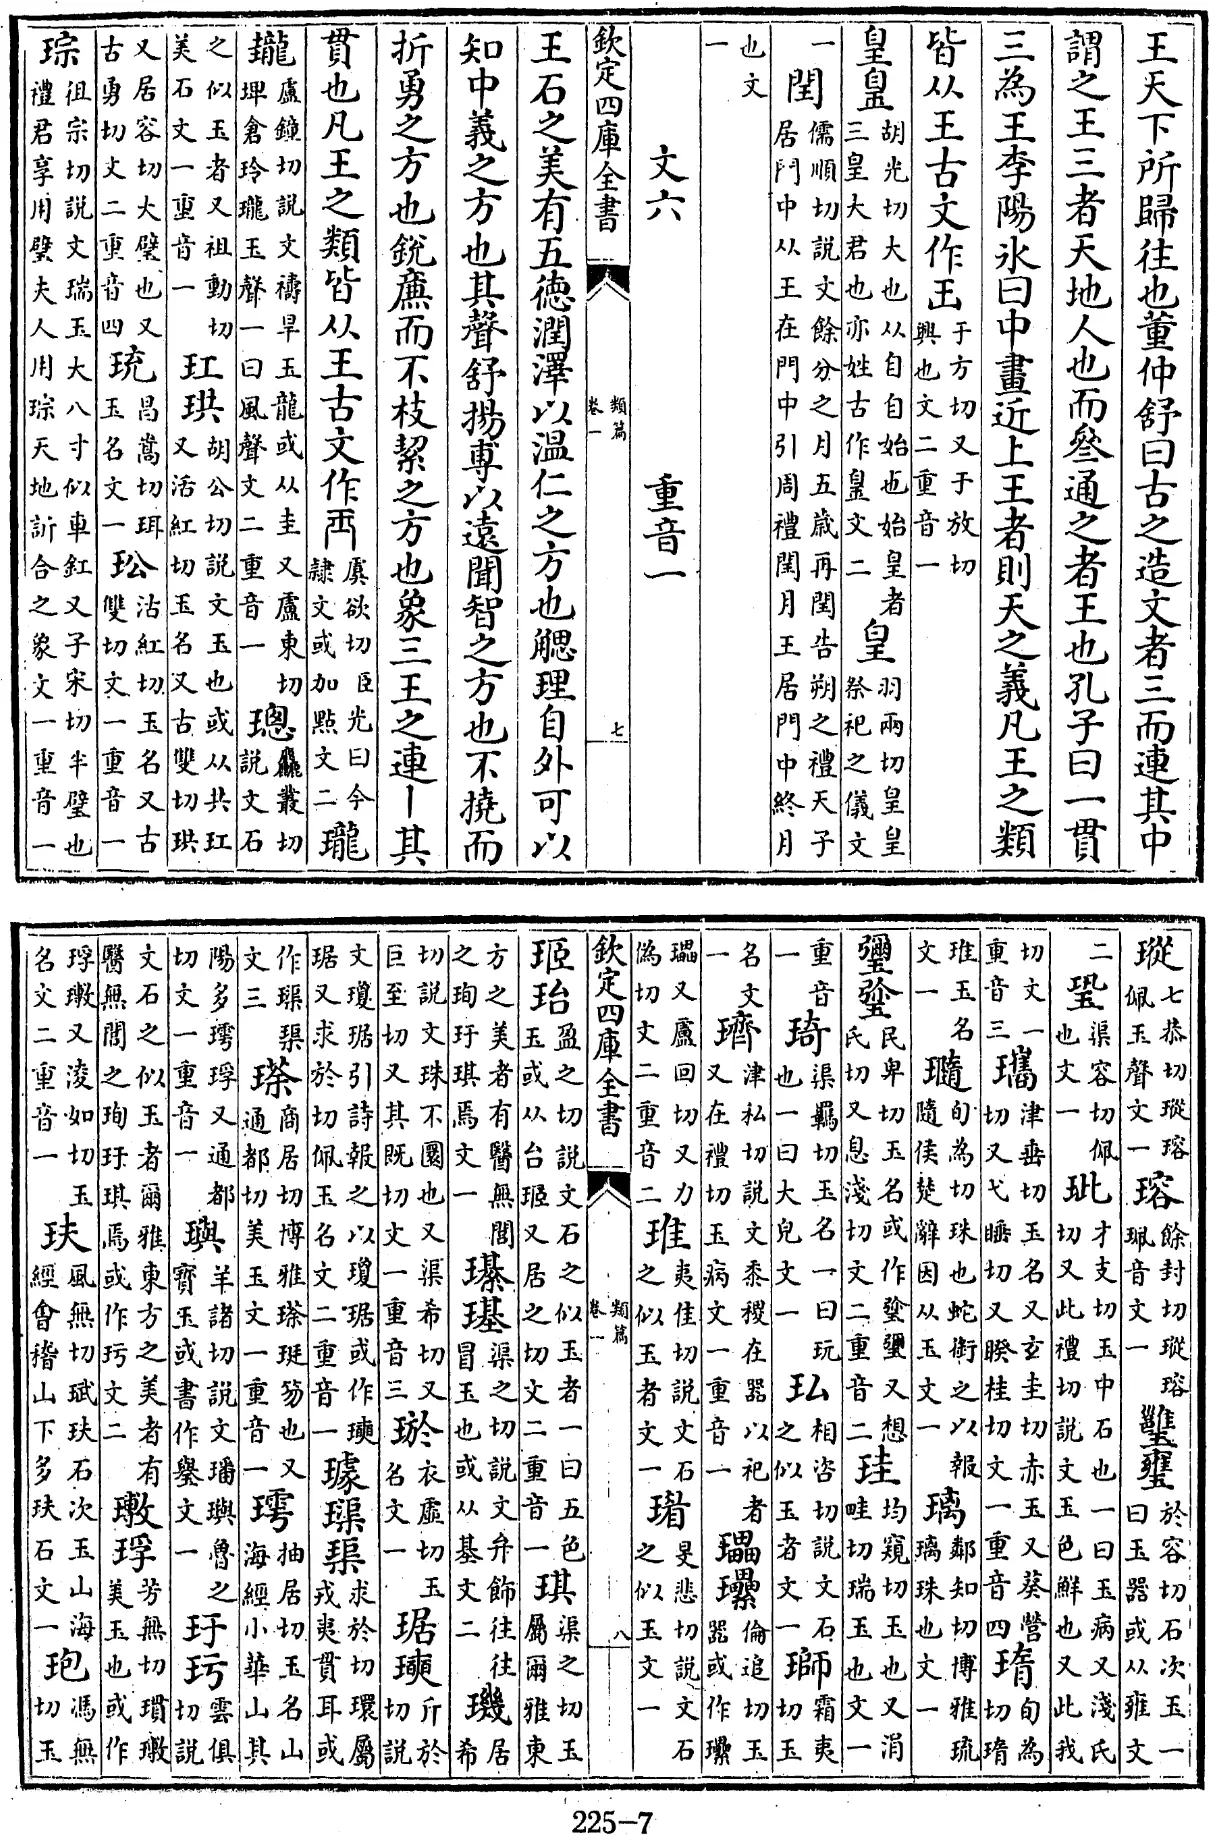 王天下所歸往也董仲舒曰古之造文者三而連其中
謂之王三者天地人也而叅通之者王也孔子曰一貫
三為王李陽冰曰中畫近上王者則天之義凡王之類
皆从王古文作𠙻于方切又于放切興也文二重音一
皇𤽚胡光切大也从自自始也始皇者三皇大君也亦姓古作𤽚文二皇羽兩切皇皇祭祀之儀文
一閏儒順切說文餘分之月五歲再閏告朔之禮天子居門中从王在門中引周禮閏月王居門中終月
也文一
文六 重音一
欽定四庫全書 類篇 卷一 七
王石之美有五德潤澤以温仁之方也䚡理自外可以
知中義之方也其聲舒揚尃以遠聞智之方也不撓而
折勇之方也銳廉而不枝絜之方也象三王之連丨其
貫也凡王之類皆从王古文作𠀚虞欲切臣光曰今隷文或加點文二瓏
鑨盧鐘切說文禱旱玉龍或从圭又盧東切埤倉玲瓏玉聲一曰風聲文二重音一璁麤叢切說文石
之似玉者又祖動切美石文一重音一玒珙胡公切說文玉也或从共玒又沽紅切玉名又古雙切珙
又居容切大璧也又古勇切文二重音四珫昌嵩切珥玉名文一玜沽紅切玉名又古雙切文一重音一
琮祖宗切說文瑞玉大八寸似車釭又子宋切半璧也禮君享用璧夫人用琮天地訢合之象文一重音一
瑽七恭切瑽瑢佩玉聲文一瑢餘封切瑽瑢珮音文一𤫕㙲於容切石次玉一曰玉器或从雍文
二㺬渠容切佩也文一玼才支切玉中石也一曰玉病又淺氏切又此禮切說文玉色鮮也又此我
切文一重音三㼇津垂切玉名又玄圭切赤玉又葵營切又弋睡切又睽桂切文一重音四㻟旬為切㻟
琟玉名文一瓍旬為切珠也蛇銜之以報隨侯楚辭因从玉文一璃鄰知切博雅琉璃珠也文一
瓕𤤴民卑切玉名或作𤤴璽又想氏切又息淺切文二重音二珪均窺切玉也又涓畦切瑞玉也文一
重音一琦渠羈切玉名一曰玩也一曰大皃文一㺨相咨切說文石之似玉者文一𤨕霜夷切玉
名文一𤪌津私切說文黍稷在器以祀者又在禮切玉病文一重音一瓃𤫤倫追切玉器或作𤫤
瓃又盧回切又力偽切文二重音二琟夷佳切說文石之似玉者文一㻗旻悲切說文石之似玉文一
欽定四庫全書 類篇 卷一 八
㺿珆盈之切說文石之似玉者一曰五色玉或从台㺿又居之切文二重音一琪渠之切玉屬爾雅東
方之美者有醫無閭之珣玗琪焉文一瑧璂渠之切說文弁飾往往冒玉也或从基文二璣居希
切說文珠不圜也又渠希切又巨至切又其既切文一重音三㻇衣虛切玉名文一琚𤩂斤於切說
文瓊琚引詩報之以瓊琚或作𤩂琚又求於切佩玉名文二重音一璩璖㻮求於切環屬戎夷貫耳或
作璖㻮文三㻌商居切博雅㻌珽笏也又通都切美玉文一重音一㻬抽居切玉名山海經小華山其
陽多㻬琈又通都切文一重音一璵羊諸切說文璠璵魯之寶玉或書作㦛文一玗㺮雲俱切說
文石之似玉者爾雅東方之美者有醫無閭之珣玗琪焉或作㺮文二璷琈芳無切瓊璷美玉也或作
琈璷又凌如切玉名文二重音一玞風無切珷玞石次玉山海經會稽山下多玞石文一玸馮無切玉
225-7